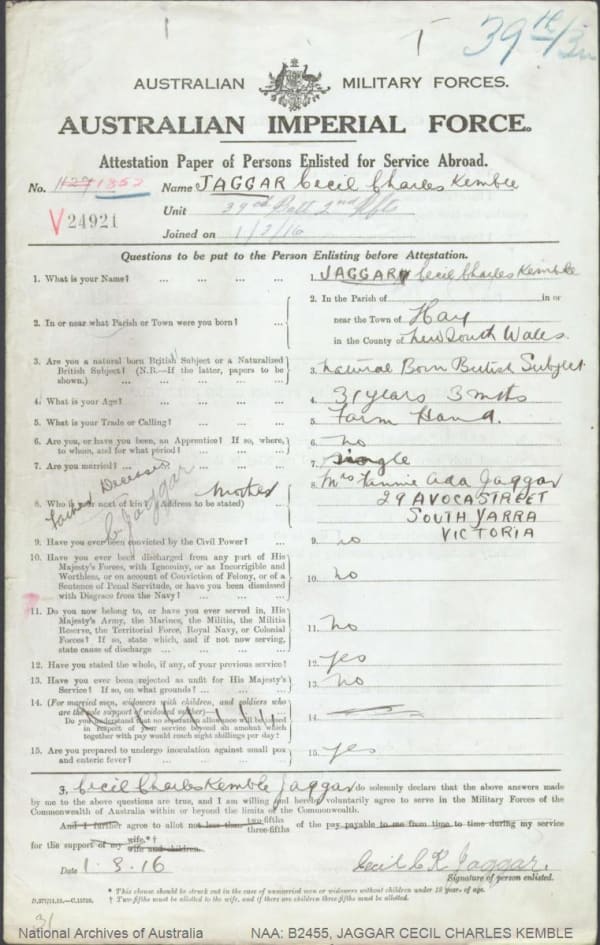 39th/3
AUSTRALIAN MILITARY FORCES.
AUSTRALIAN IMPERIAL FORCE.
Attestation Paper of Persons Enlisted for Service Abroad.
No. 1352 Name JAGGAR Cecil Charles Kemble
V24921
Unit 39th Batt 2nd Rfts
Joined on 1/3/16
Questions to be put to the Person Enlisting before Attestation.
1. What is your Name? ... ... ... 1. JAGGAR, Cecil Charles Kemble
2. In or near what Parish or Town were you born? ... 2. In the Parish of in or
near the Town of Hay
in the County of New South Wales.
3. Are you a natural born British Subject or a Naturalized
British Subject? (N.B.—If the latter, papers to be
shown.) ... ... ... 3. Natural Born British Subject
4. What is your Age? ... ... ... 4. 31 years 3 mths
5. What is your Trade or Calling? ... ... 5. Farm Hand.
6. Are you, or have you been, an Apprentice? If so, where,
to whom, and for what period? ... ... 6. no
7. Are you married? ... ... ... 7. single
Father Deceased
C Jaggar
8. Who is your next of kin? (Address to be stated) Mother 8. Mrs Fannie Ada Jaggar
29 AVOCA STREET
SOUTH YARRA
VICTORIA
9. Have you ever been convicted by the Civil Power? ... 9. no
10. Have you ever been discharged from any part of His
Majesty's Forces, with Ignominy, or as Incorrigible and
Worthless, or on account of Conviction of Felony, or of a
Sentence of Penal Servitude, or have you been dismissed
with Disgrace from the Navy? ... ... 10. no
11. Do you now belong to, or have you ever served in, His
Majesty's Army, the Marines, the Militia, the Militia
Reserve, the Territorial Force, Royal Navy, or Colonial
Forces? If so, state which, and if not now serving,
state cause of discharge ... ... 11. no
12. Have you stated the whole, if any, of your previous service? 12. yes
13. Have you ever been rejected as unfit for His Majesty's
Service? If so, on what grounds? ... ... 13. no
14. (For married men, widowers with children, and soldiers who
are the sole support of widowed mother)—
Do you understand that no separation allowance will be issued
in respect of your service beyond an amount which
together with pay would reach eight shillings per day? 14.
15. Are you prepared to undergo inoculation against small pox
and enteric fever? ... ... ... 15. yes
I, Cecil Charles Kemble Jaggar do solemnly declare that the above answers made
by me to the above questions are true, and I am willing and hereby voluntarily agree to serve in the Military Forces of the
Commonwealth of Australia within or beyond the limits of the Commonwealth.
And I further agree to allot not less than two-fifths three-fifths of the pay payable to me from time to time during my service
for the support of my wife.*† wife and children.
Date 1.3.16 Cecil C K Jaggar.
Signature of person enlisted.
* This clause should be struck out in the case of unmarried men or widowers without children under 18 years of age.
† Two-fifths must be allotted to the wife, and if there are children three-fifths must be allotted.
National Archives of Australia NAA: B2455, JAGGAR CECIL CHARLES KEMBLE